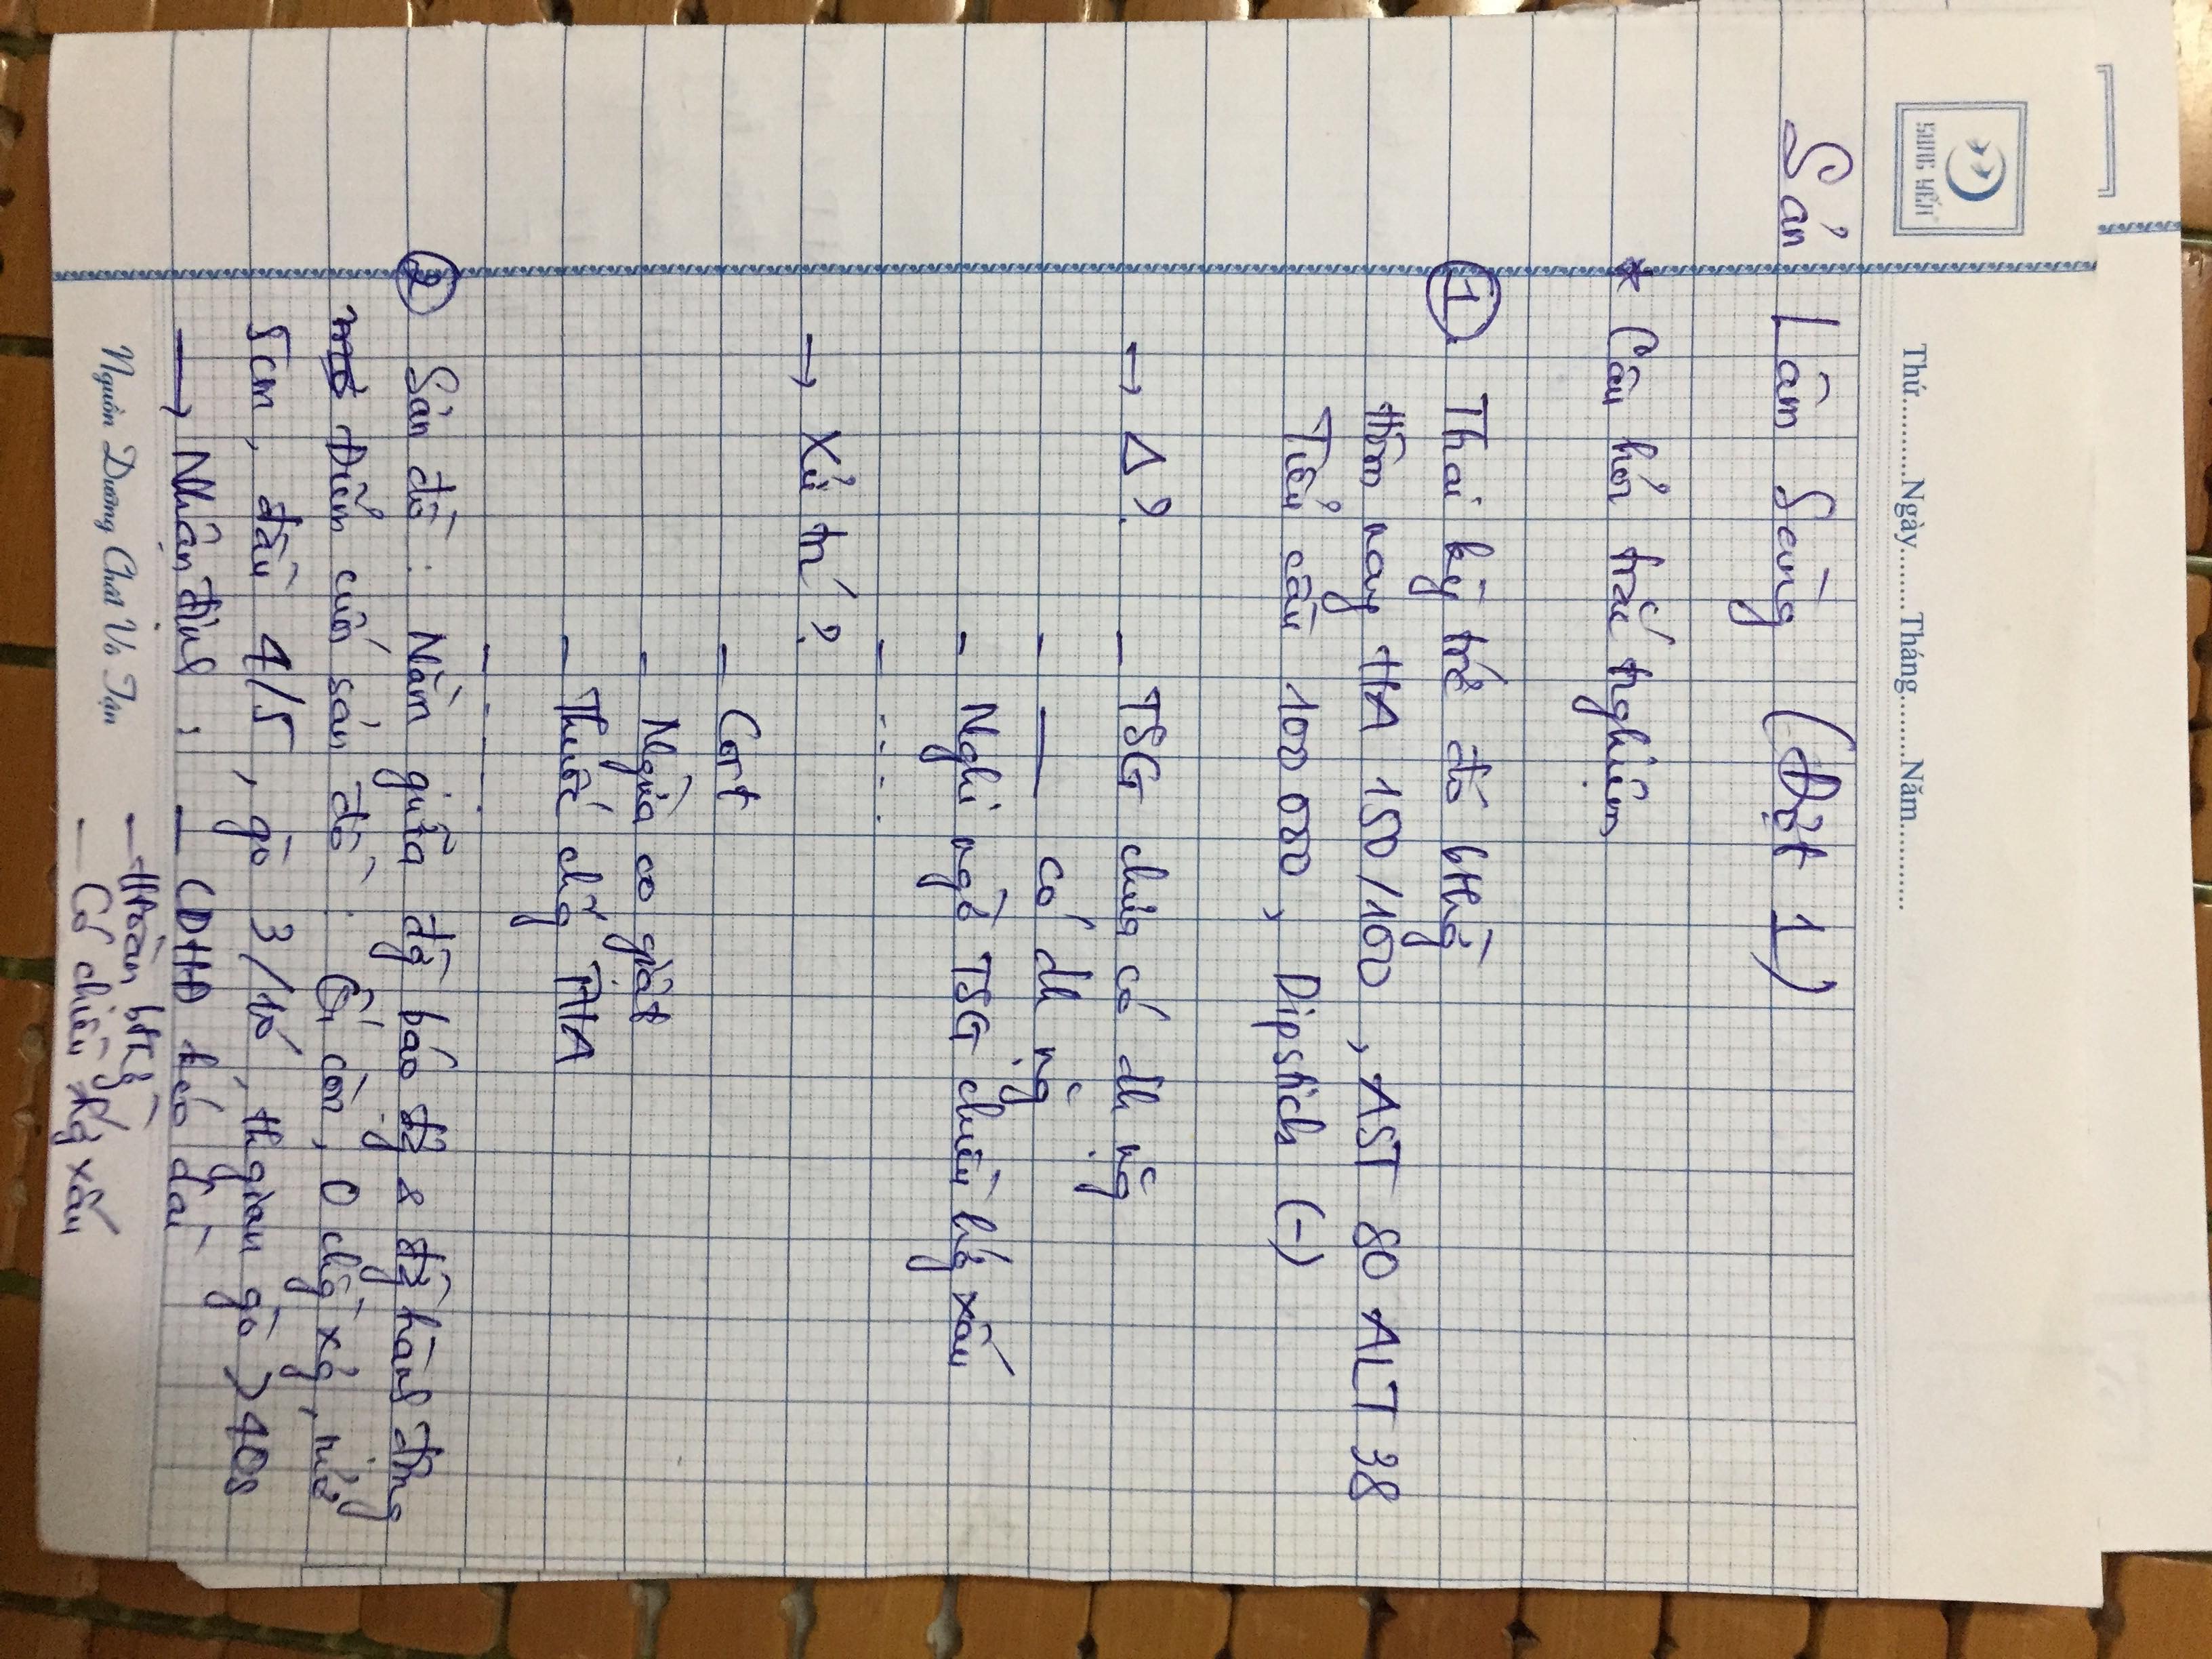 SONG YẾN
Thứ..........Ngày........Tháng........Năm...........
Sản Lâm Sàng (Đợt 1)
* Câu hỏi trắc nghiệm
1. Thai kỳ trc đó bthg
Hôm nay HA 150/100, AST 80 ALT 38
Tiểu cầu 100 000, Dipstick (-)
→ Δ? - TSG chưa có dh nặg
- — có dh nặg
- Nghi ngờ TSG chiều hg xấu
- ....
→ Xử trí?
- Cort
- Ngừa co giật
- Thuốc chg THA
- .....
2 Sản đồ: Nằm giữa đg báo độg & đg hành động
Điểm cuối sản đồ: Ối còn, 0 chồg xg, mở
5cm, đầu 4/5, gò 3/10', thgian gò >40s
→ Nhận định: - CDHĐ kéo dài
- Htoàn bthg
- Có chiều hg xấu
Nguồn Dưỡng Chất Vô Tận